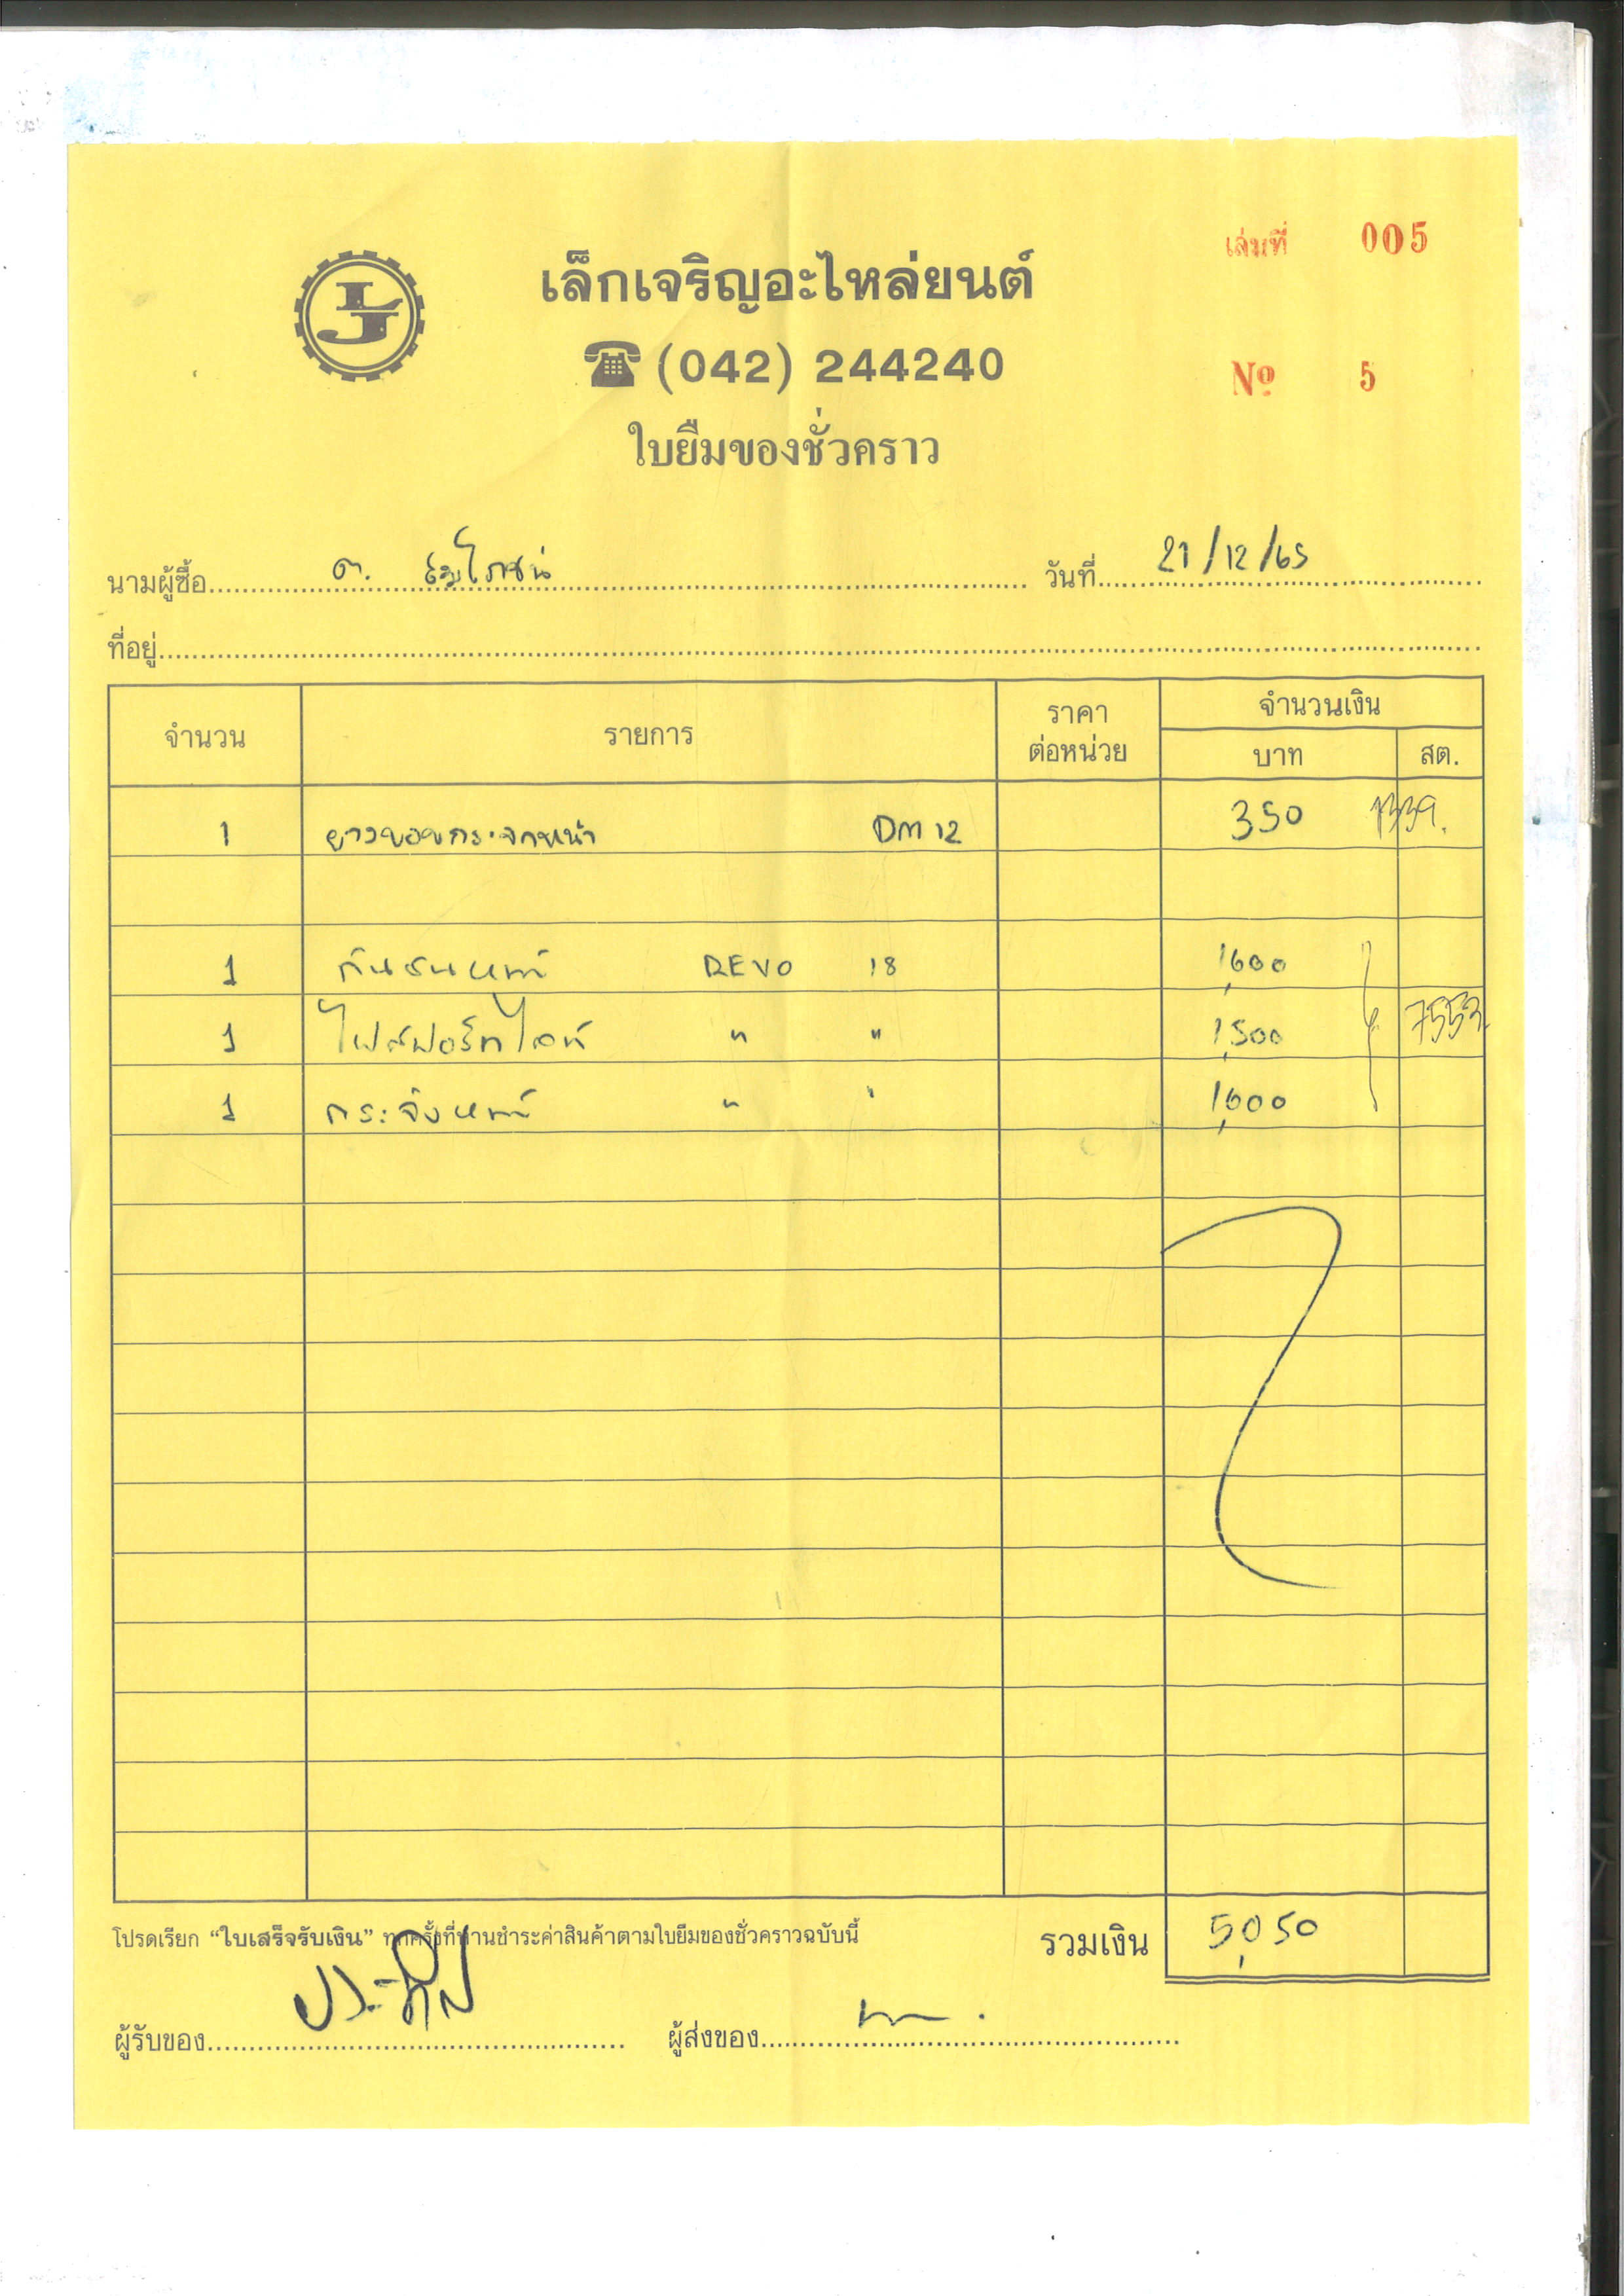 เล่มที่ 005
LJ
เล็กเจริญอะไหล่ยนต์
☎ (042) 244240
Nº 5
ใบยืมของชั่วคราว
นามผู้ซื้อ วันที่ 21/12/65
ที่อยู่
จำนวน รายการ ราคาต่อหน่วย จำนวนเงิน
บาท สต.
1 ยางขอบกระจกหน้า DM 12 350 1339.
1 กันชนหน้า REVO 18 1,600
1 ไฟสปอร์ทไลท์ " " 1,500 7553
1 กระจังหน้า " " 1,600
โปรดเรียก “ใบเสร็จรับเงิน” ทุกครั้งที่ท่านชำระค่าสินค้าตามใบยืมของชั่วคราวฉบับนี้ รวมเงิน 5,050
ผู้รับของ ประทีป ผู้ส่งของ